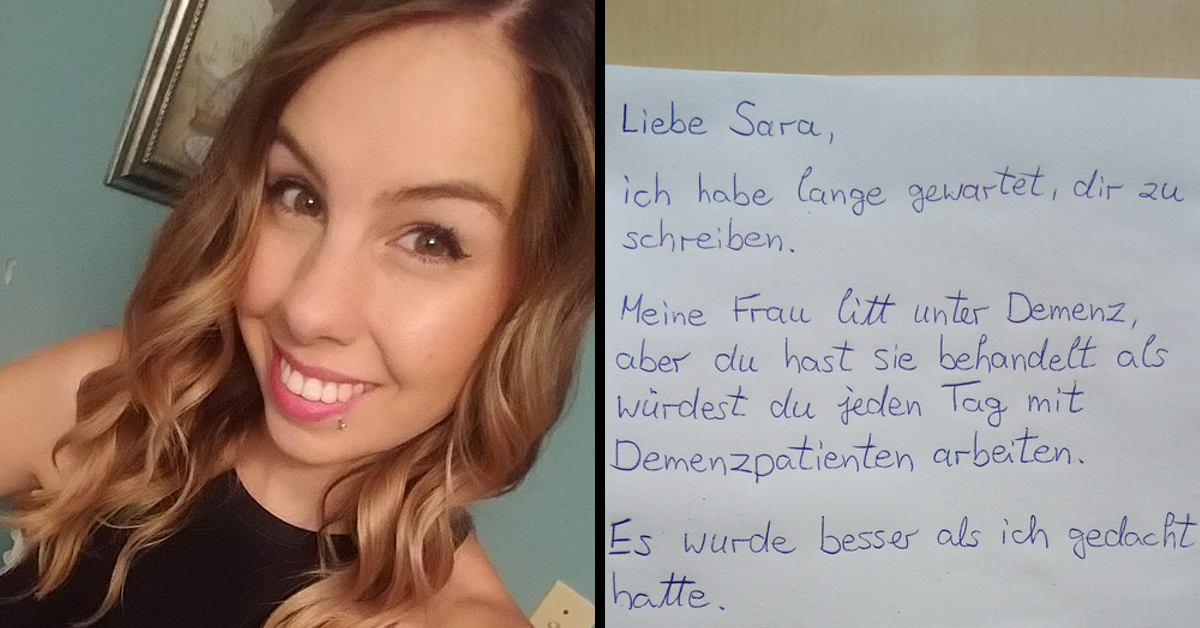 Liebe Sara,
ich habe lange gewartet, dir zu
schreiben.
Meine Frau litt unter Demenz,
aber du hast sie behandelt als
würdest du jeden Tag mit
Demenzpatienten arbeiten.
Es wurde besser als ich gedacht
hatte.